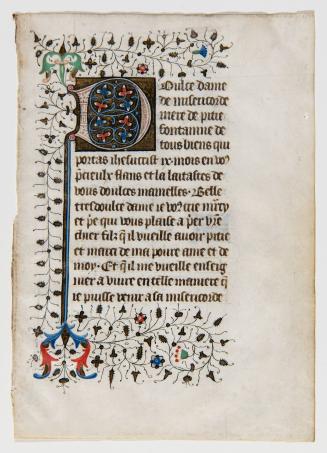 Doulce dame
de misericorde
mere de pitie
fontainne de
tous biens qui
portas ihesucrist .ix. mois en voz
p̃cieulx flans et la laitastes de
voz doulces mamelles. Belle
tresdoulce dame ie voꝰ crie m̃cy
et p̃e que vous plaise a p̃er vr̃e
chier filz q̃ il vueille auoir pitie
et merci de ma poure ame et de
moy. Et q̃ il me vueille enseig
nier a viure en telle maniere q̃
ie puisse venir a sa misericorde